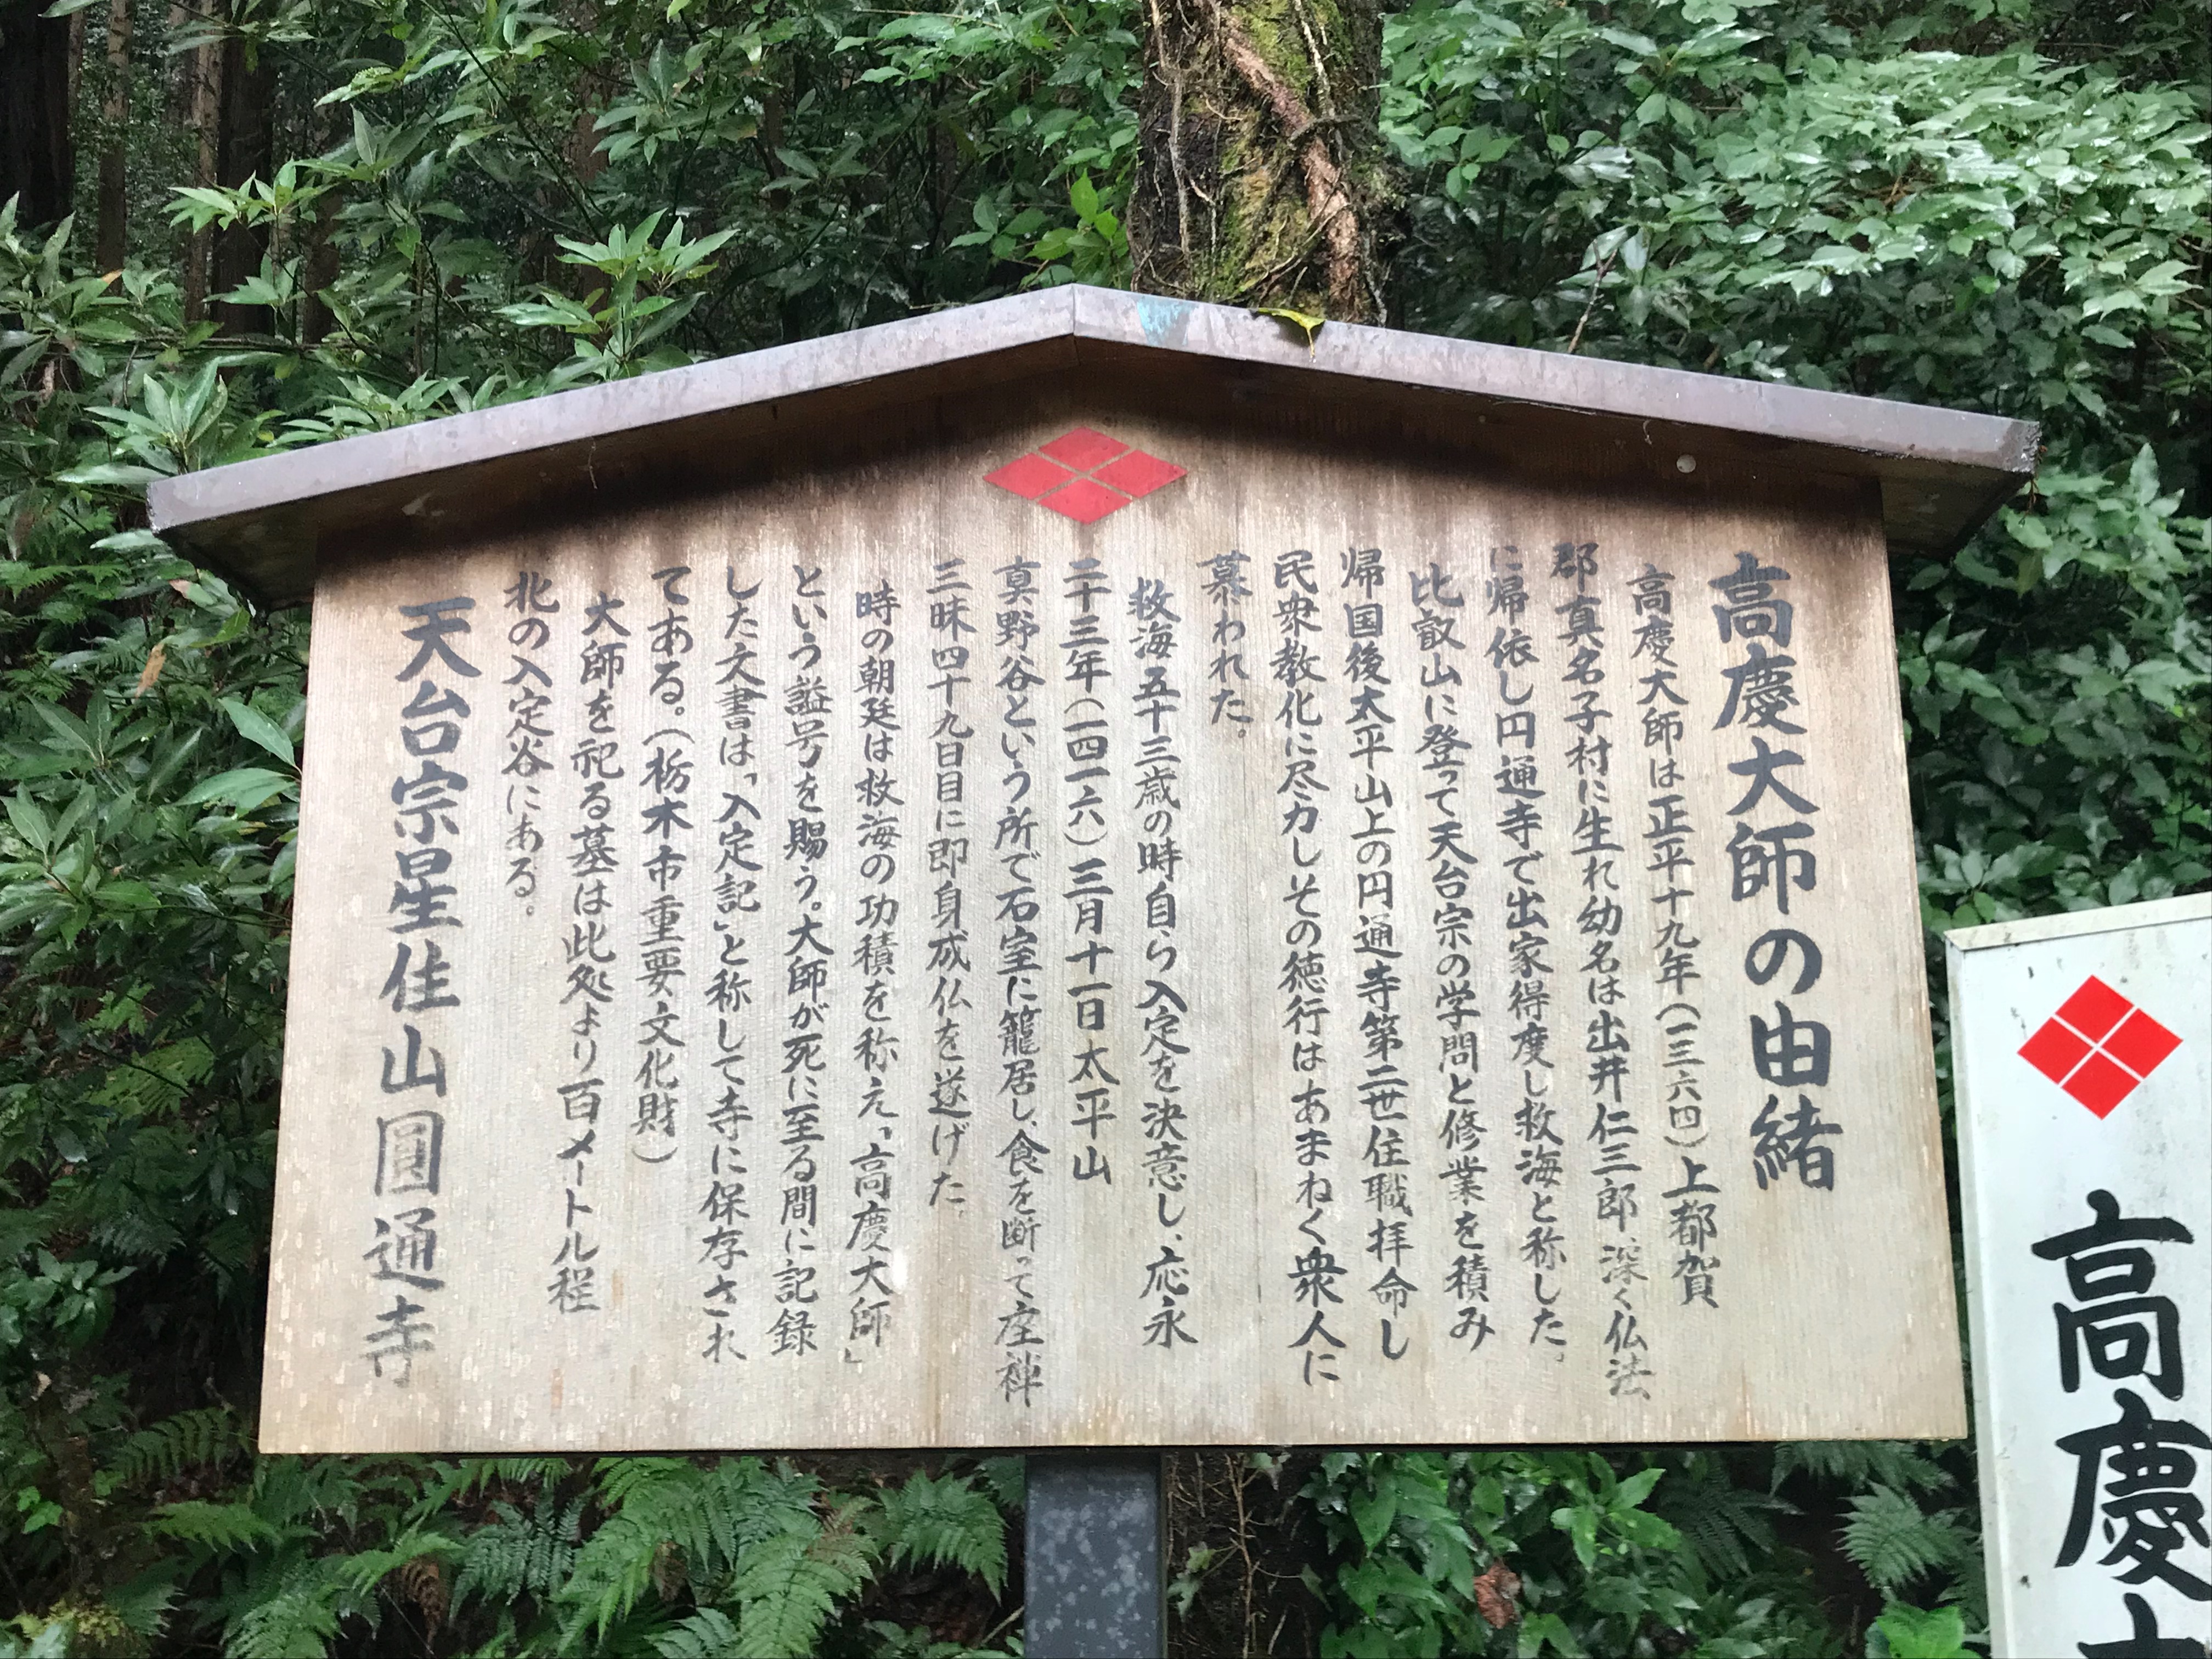 高慶大師の由緒
高慶大師は正平十九年(一三六四)上都賀
郡真名子村に生れ幼名は出井仁三郎、深く仏法
に帰依し円通寺で出家得度し救海と称した。
比叡山に登って天台宗の学問と修業を積み
帰国後太平山上の円通寺第二世住職拝命し
民衆教化に尽力しその徳行はあまねく衆人に
慕われた。
救海五十三歳の時自ら入定を決意し、応永
二十三年(一四一六)三月十一日太平山
真野谷という所で石室に籠居し、食を断って座禅
三昧四十九日目に即身成仏を遂げた。
時の朝廷は救海の功積を称え、「高慶大師」
という謚号を賜う。大師が死に至る間に記録
した文書は、「入定記」と称して寺に保存され
てある。(栃木市重要文化財)
大師を祀る墓は此処より百メートル程
北の入定谷にある。
天台宗星住山圓通寺
高慶大